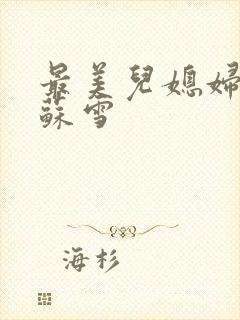 最美兒媳婦
蘇雪
海杉